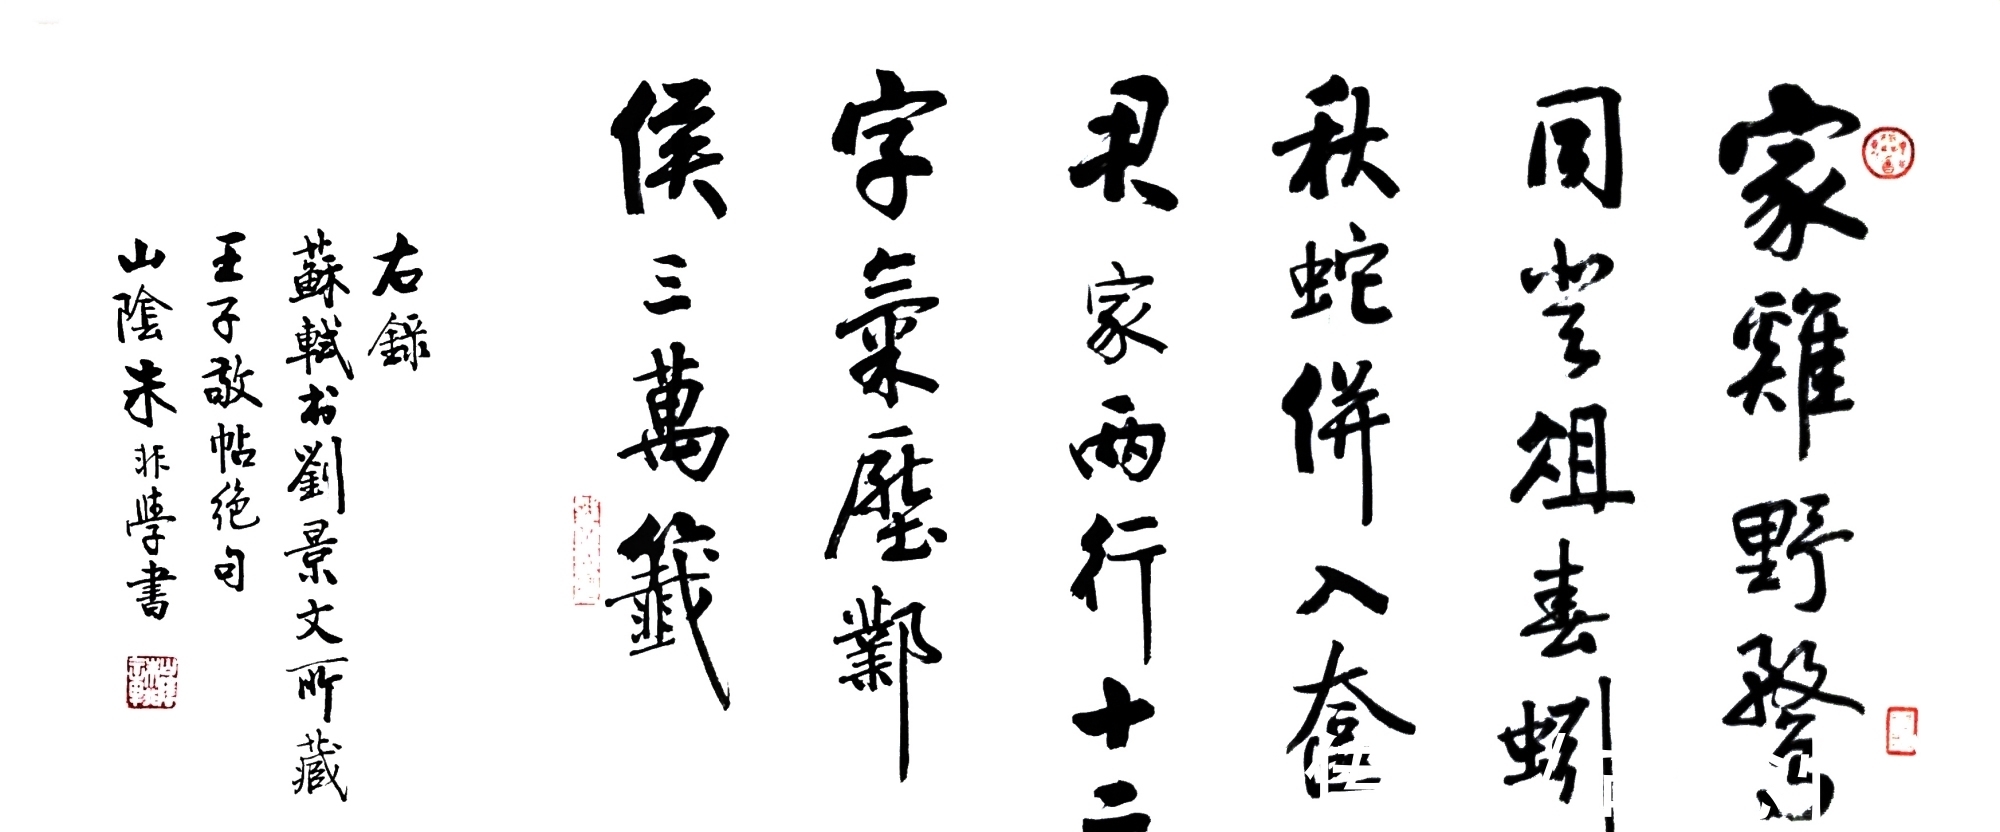 家雞野鶩
同登俎春蚓
秋蛇併入奩
君家兩行十二
字氣壓鄴
侯三萬籤
右錄
蘇軾书劉景文所藏
王子敬帖绝句
山陰朱非學書